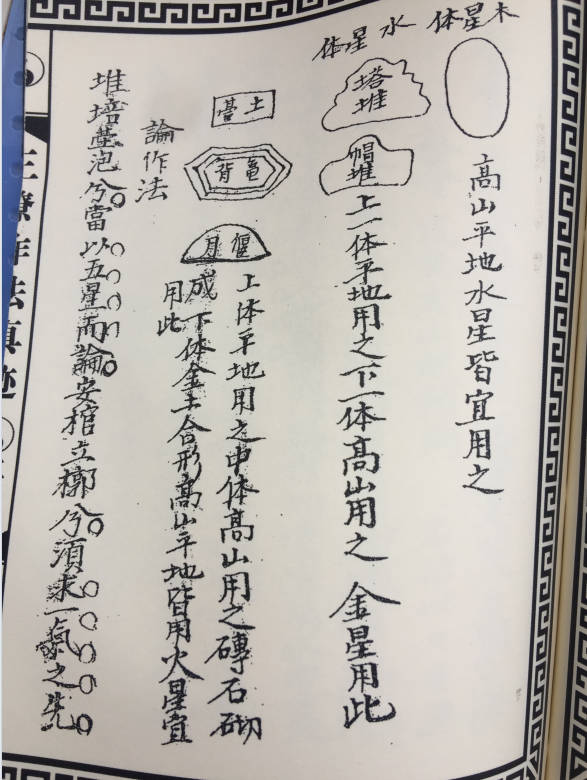 木星体
高山平地水星皆宜用之
水星体
塔堆
帽堆
上一体平地用之下一体高山用之 金星用此
土臺
龜背
偃月
上体平地用之中体高山用之磚石砌
成下体金土合形高山平地皆用火星宜
用此
論作法
堆培泡兮當以五星而論安棺立槨兮須求一氣之先
作法真迹